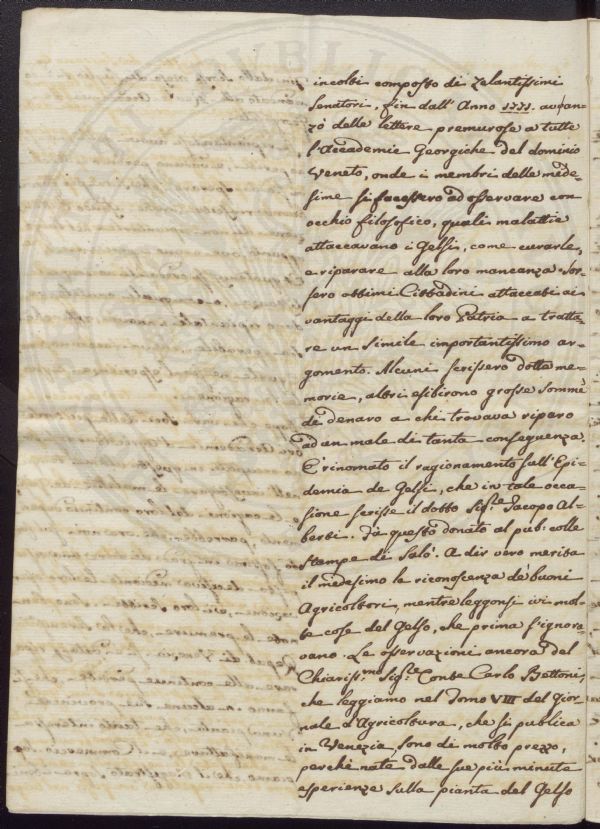 incolti composto di zelantissimi
Senatori, fin dall'Anno 1771. avan=
zò delle lettere premurose a tutte
l'Accademie Georgiche del dominio
Veneto, onde i membri delle mede=
sime si facessero ad osservare con
occhio filosofico, quali malattie
attaccavano i Gelsi, come curarle,
e riparare alla loro mancanza. Sor=
sero ottimi Cittadini attaccati ai
vantaggi della loro Patria a tratta=
re un simile importantissimo ar=
gomento. Alcuni scrissero dotte me=
morie, altri esibirono grosse somme
di denaro a chi trovava riparo
ad un male di tanta conseguenza.
È rinomato il ragionamento sull'Epi=
demia de Gelsi, che in tale occa=
sione scrisse il dotto Sig.re Jacopo Al=
berti. Fà questo donato al pub: colle
stampe di Salò. A dir vero merita
il medesimo la riconoscenza de' buoni
Agricoltori, mentre leggonsi ivi mol=
te cose del Gelso, che prima s'ignora=
vano. Le osservazioni ancora del
Chiarisi.mo Sig.re Conte Carlo Bettoni,
che leggiamo nel Tomo VIII del Gior=
nale d'Agricoltura, che si publica
in Venezia, sono di molto prezzo,
perchè nate dalle sue più minute
esperienze sulla pianta del Gelso